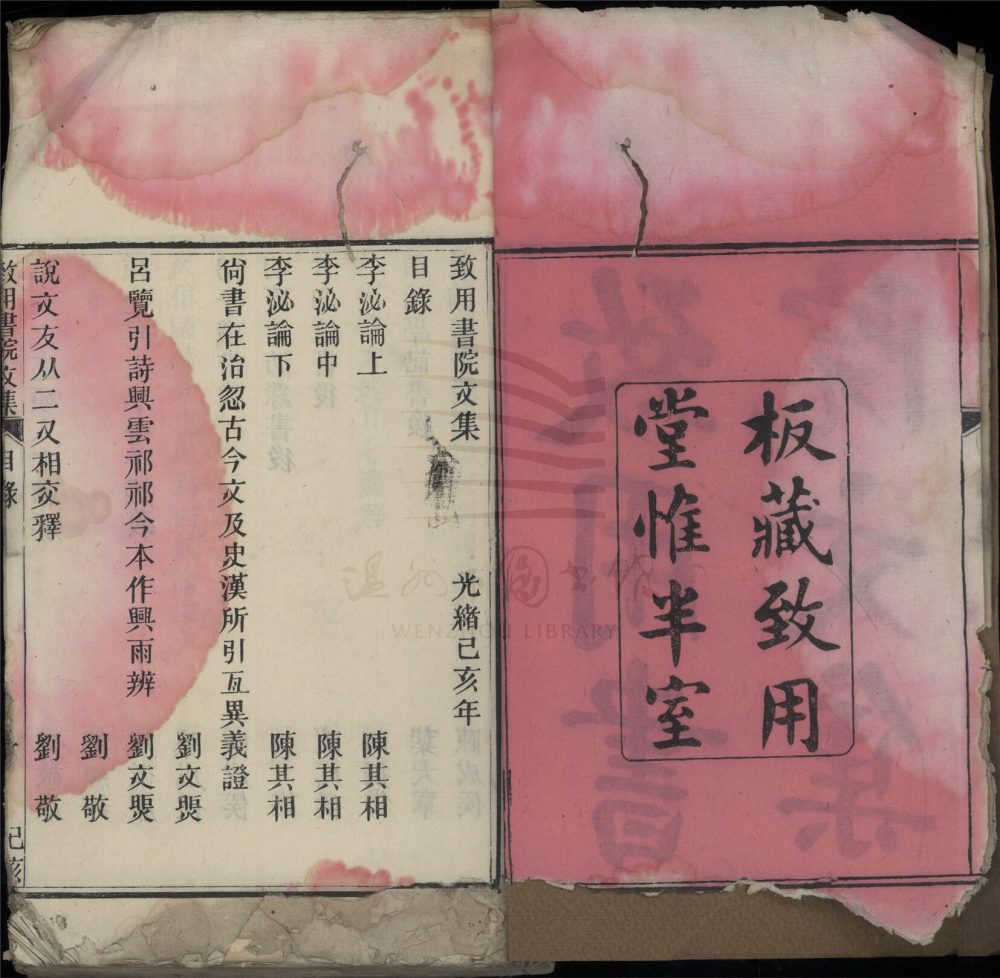 板藏致用
堂惟半室
致用書院文集 光緒己亥年
目錄
李泌論上 陳其相
李泌論中 陳其相
李泌論下 陳其相
尙書在治忽古今文及史漢所引互異義證
劉文㷼
呂覽引詩興雲祁祁今本作興雨辨 劉文㷼
劉敬
說文友从二又相交釋 劉敬
致用書院文集 目錄 己亥
WENZHOU LIBRARY